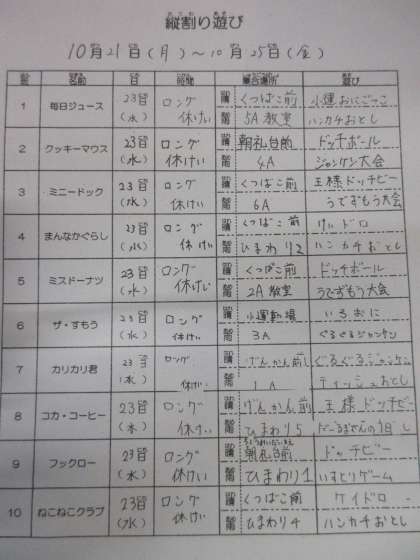 縦割り遊び
10月21日(月)~10月25日(金)
班 名前 日 時間 集合場所 遊び
1 毎日ジュース 23日(水) ロング休けい 晴 くつばこ前 小運おにごっこ
雨 5A教室 ハンカチおとし
2 クッキーマウス 23日(水) ロング休けい 晴 朝礼台前 ドッチボール
雨 4A ジャンケン大会
3 ミニードック 23日(水) ロング休けい 晴 くつばこ前 王様ドッチビー
雨 6A うでずもう大会
4 まんなかぐらし 23日(水) ロング休けい 晴 くつばこ前 けいドロ
雨 ひまわり2 ハンカチおとし
5 ミスドーナツ 23日(水) ロング休けい 晴 くつばこ前 ドッチボール
雨 2A教室 うでずもう大会
6 ザ・すもう 23日(水) ロング休けい 晴 小運動場 いろおに
雨 3A ぐるぐるジャンケン
7 カリカリ君 23日(水) ロング休けい 晴 げんかん前 ぐるぐるジャンケン
雨 1A ティッシュおとし
8 コカ・コーヒー 23日(水) ロング休けい 晴 げんかん前 王様ドッチビー
雨 ひまわり5 だーるまさんの1日
9 フックロー 23日(水) ロング休けい 晴 朝礼台前 ドッチビー
雨 ひまわり1 いすとりゲーム
10 ねこねこクラブ 23日(水) ロング休けい 晴 くつばこ前 ケイドロ
雨 ひまわり4 ハンカチおとし